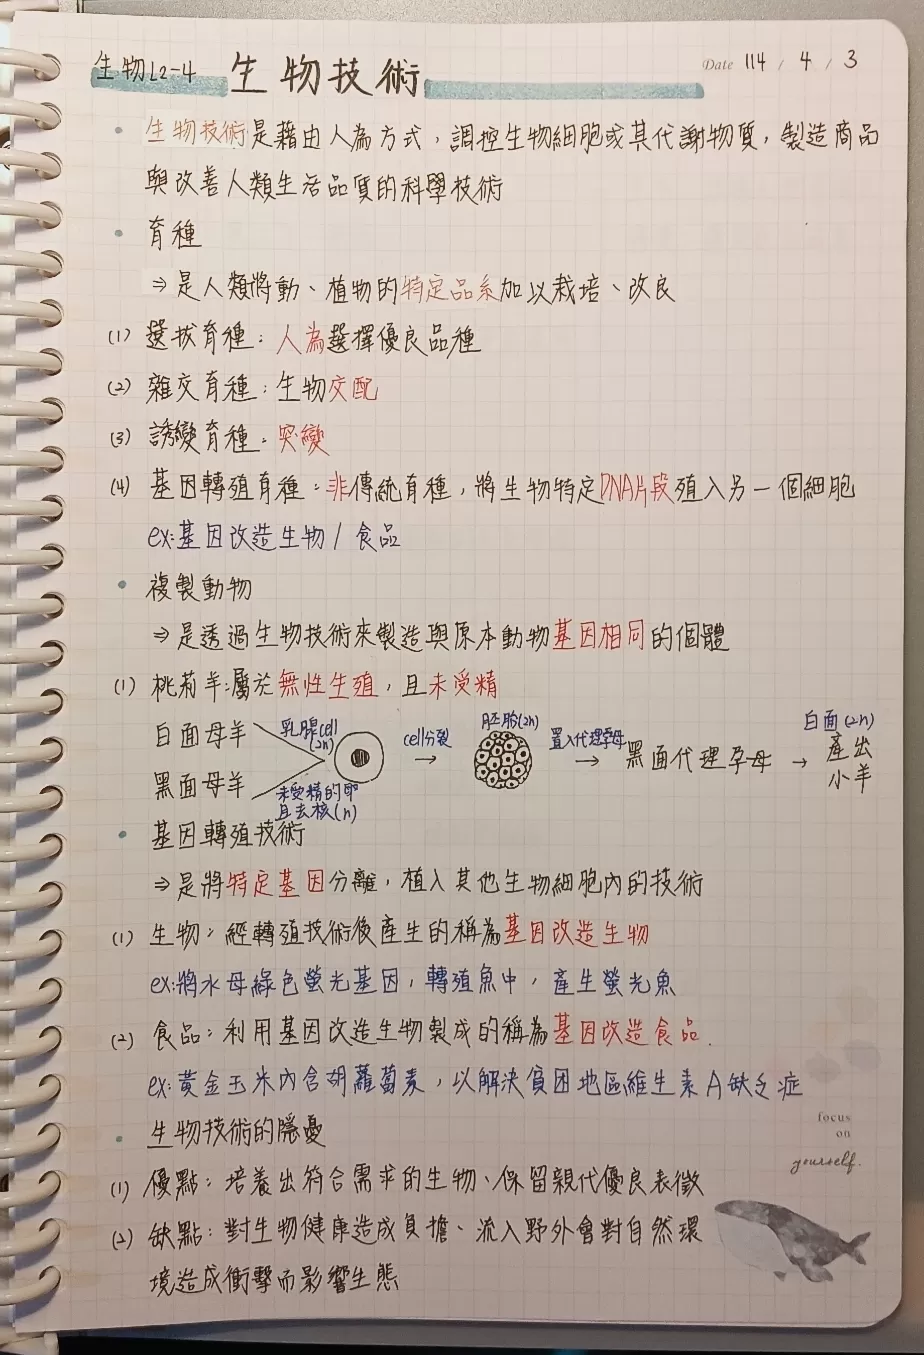 生物L2-4 生物技術 Date 114 / 4 / 3
• 生物技術是藉由人為方式，調控生物細胞或其代謝物質，製造商品
與改善人類生活品質的科學技術
• 育種
⇒ 是人類將動、植物的特定品系加以栽培、改良
(1) 選拔育種：人為選擇優良品種
(2) 雜交育種：生物交配
(3) 誘變育種：突變
(4) 基因轉殖育種：非傳統育種，將生物特定DNA片段殖入另一個細胞
ex:基因改造生物/食品
• 複製動物
⇒ 是透過生物技術來製造與原本動物基因相同的個體
(1) 桃莉羊:屬於無性生殖，且未受精
白面母羊 乳腺cell (2n)
黑面母羊 未受精的卵 且去核(n)
→ cell分裂
胚胎(2n)
→ 置入代理孕母
黑面代理孕母 →
白面(2n)
產出
小羊
• 基因轉殖技術
⇒ 是將特定基因分離，植入其他生物細胞內的技術
(1) 生物：經轉殖技術後產生的稱為基因改造生物
ex:將水母綠色螢光基因，轉殖魚中，產生螢光魚
(2) 食品：利用基因改造生物製成的稱為基因改造食品.
ex:黃金玉米內含胡蘿蔔素，以解決貧困地區維生素A缺乏症
• 生物技術的隱憂
(1) 優點：培養出符合需求的生物、保留親代優良表徵
(2) 缺點：對生物健康造成負擔、流入野外會對自然環
境造成衝擊而影響生態
focus
on
yourself.